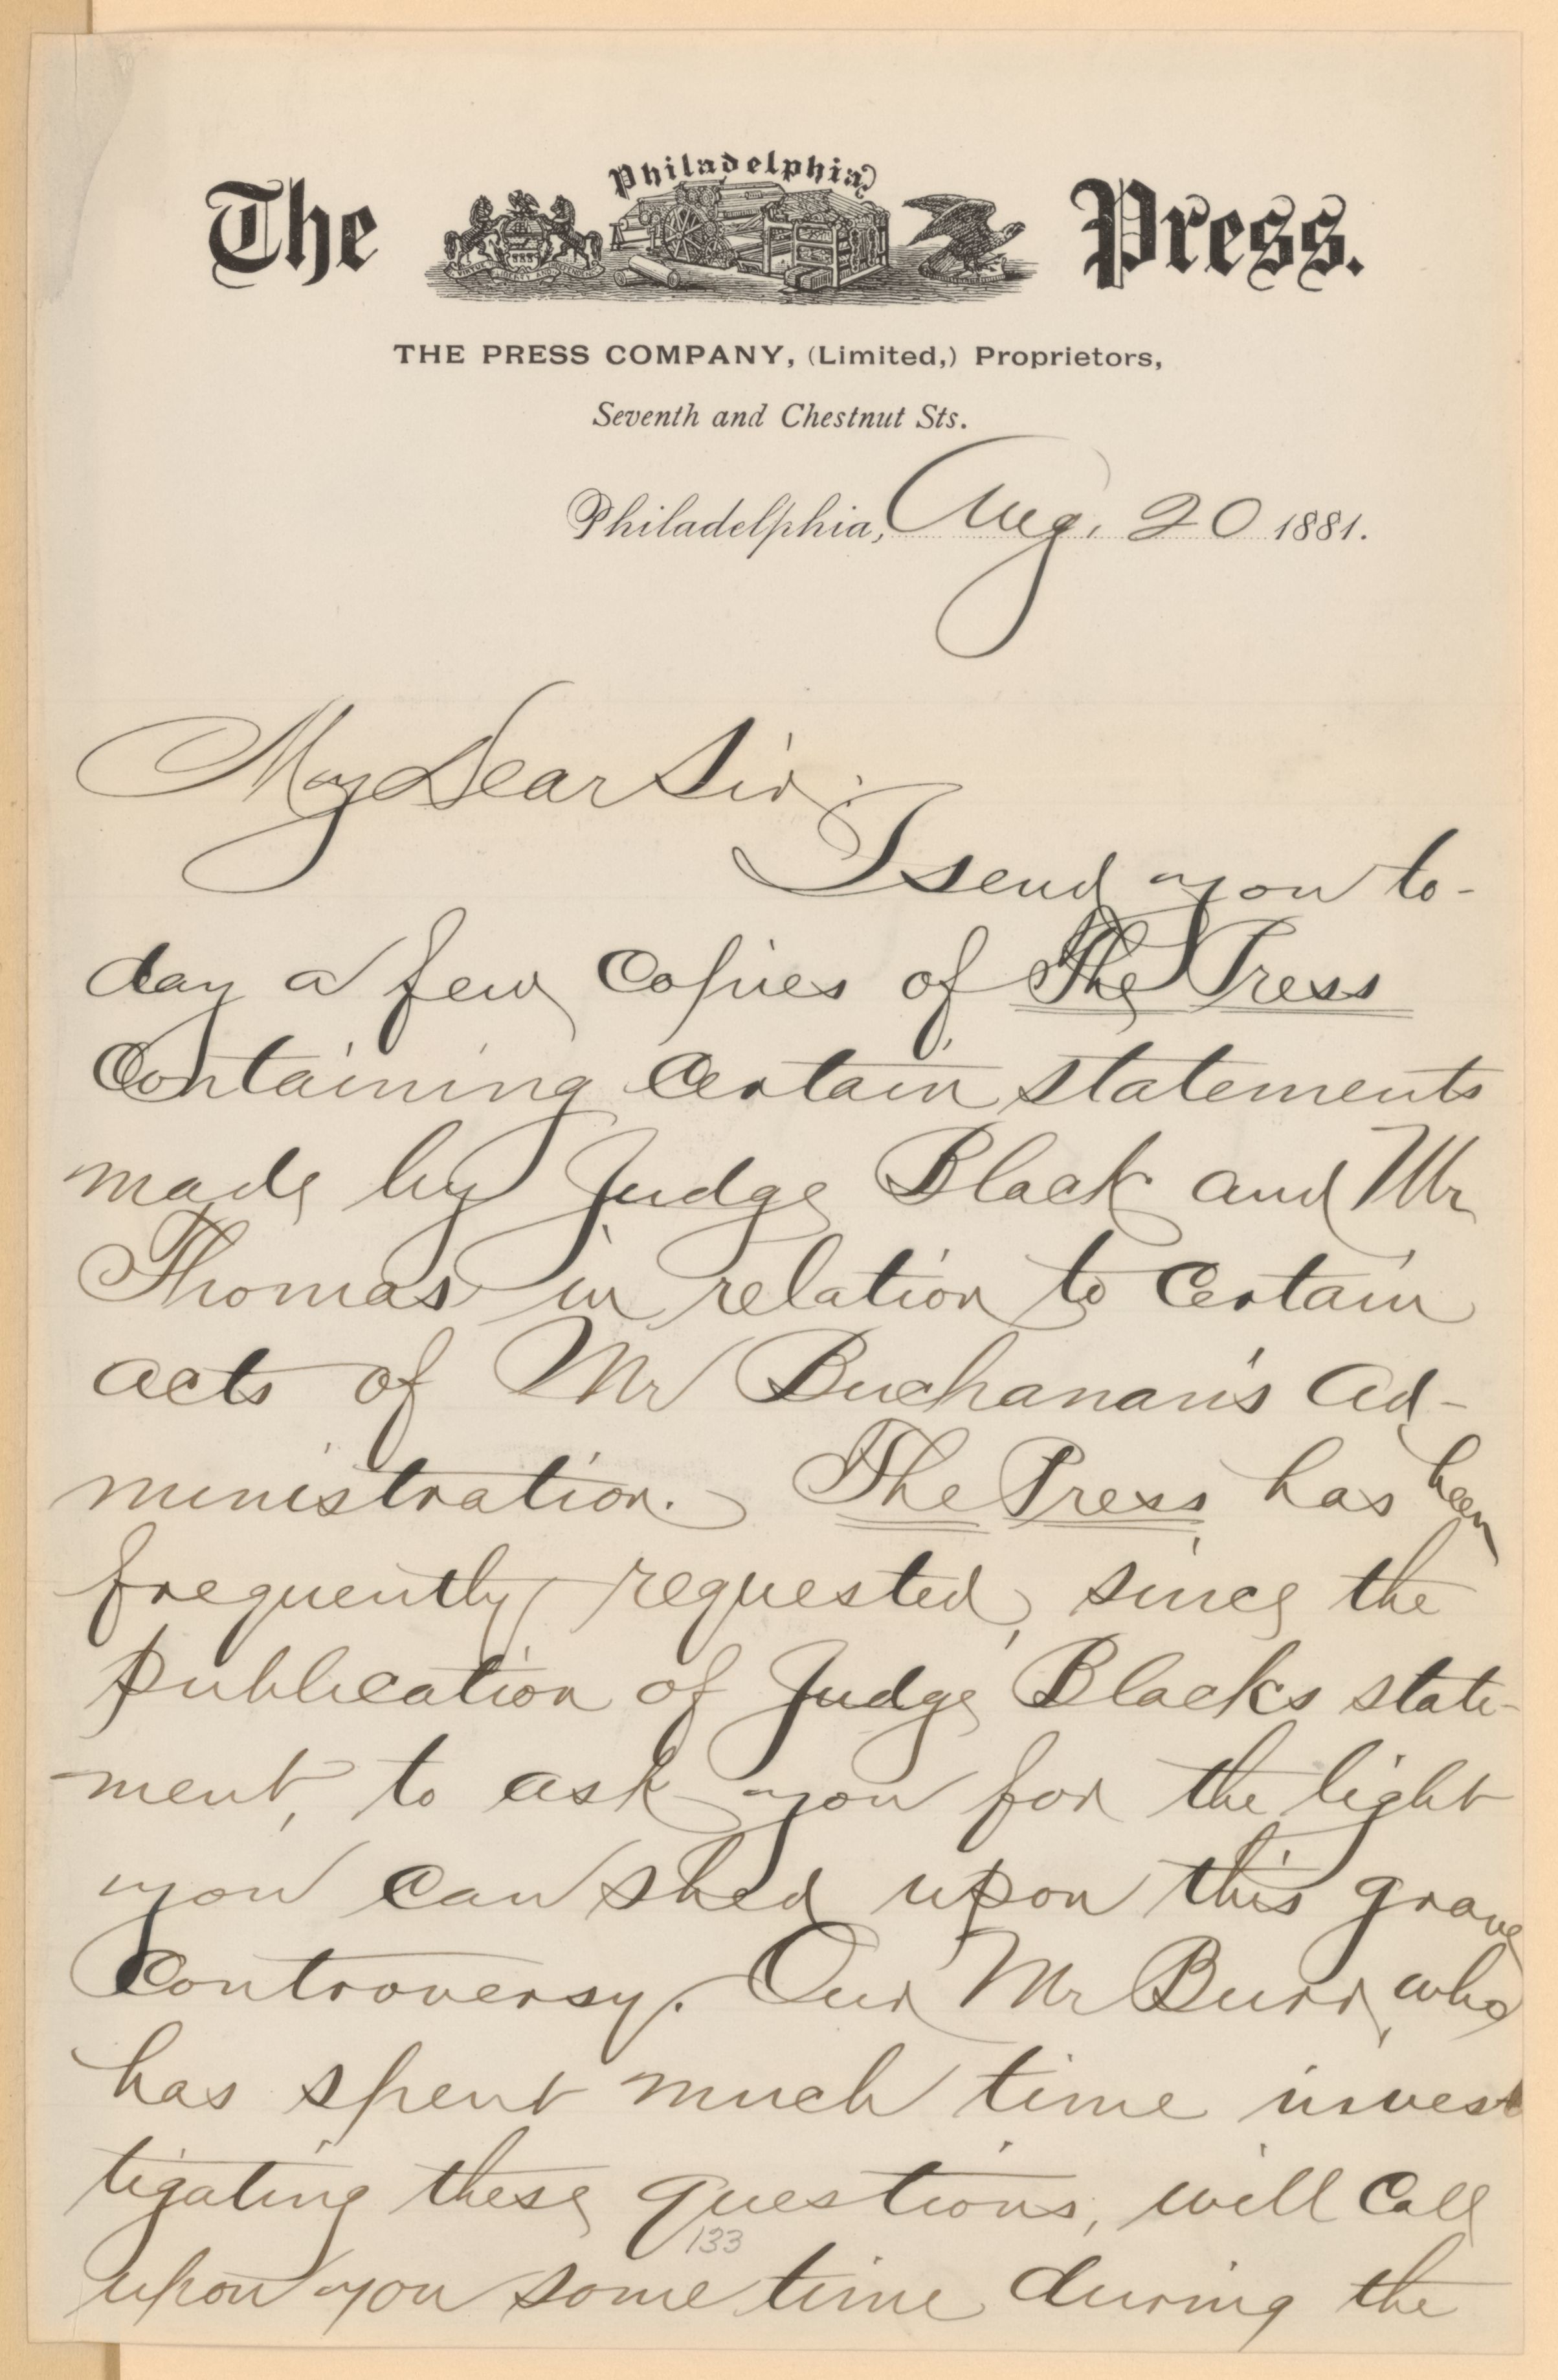 The Philadelphia Press.
THE PRESS COMPANY, (Limited,) Proprietors,
Seventh and Chestnut Sts.
Philadelphia, Aug. 20 1881.
My Dear Sir:
I send you to-
day a few copies of The Press
containing certain statements
made by Judge Black and Mr
Thomas in relation to certain
acts of Mr Buchanan's ad-
ministration. The Press has been
frequently requested, since the
publication of Judge Blacks state-
ment, to ask you for the light
you can shed upon this grave
controversy. Our Mr Burr, who
has spent much time inves-
tigating these questions, will call
133
upon you some time during the